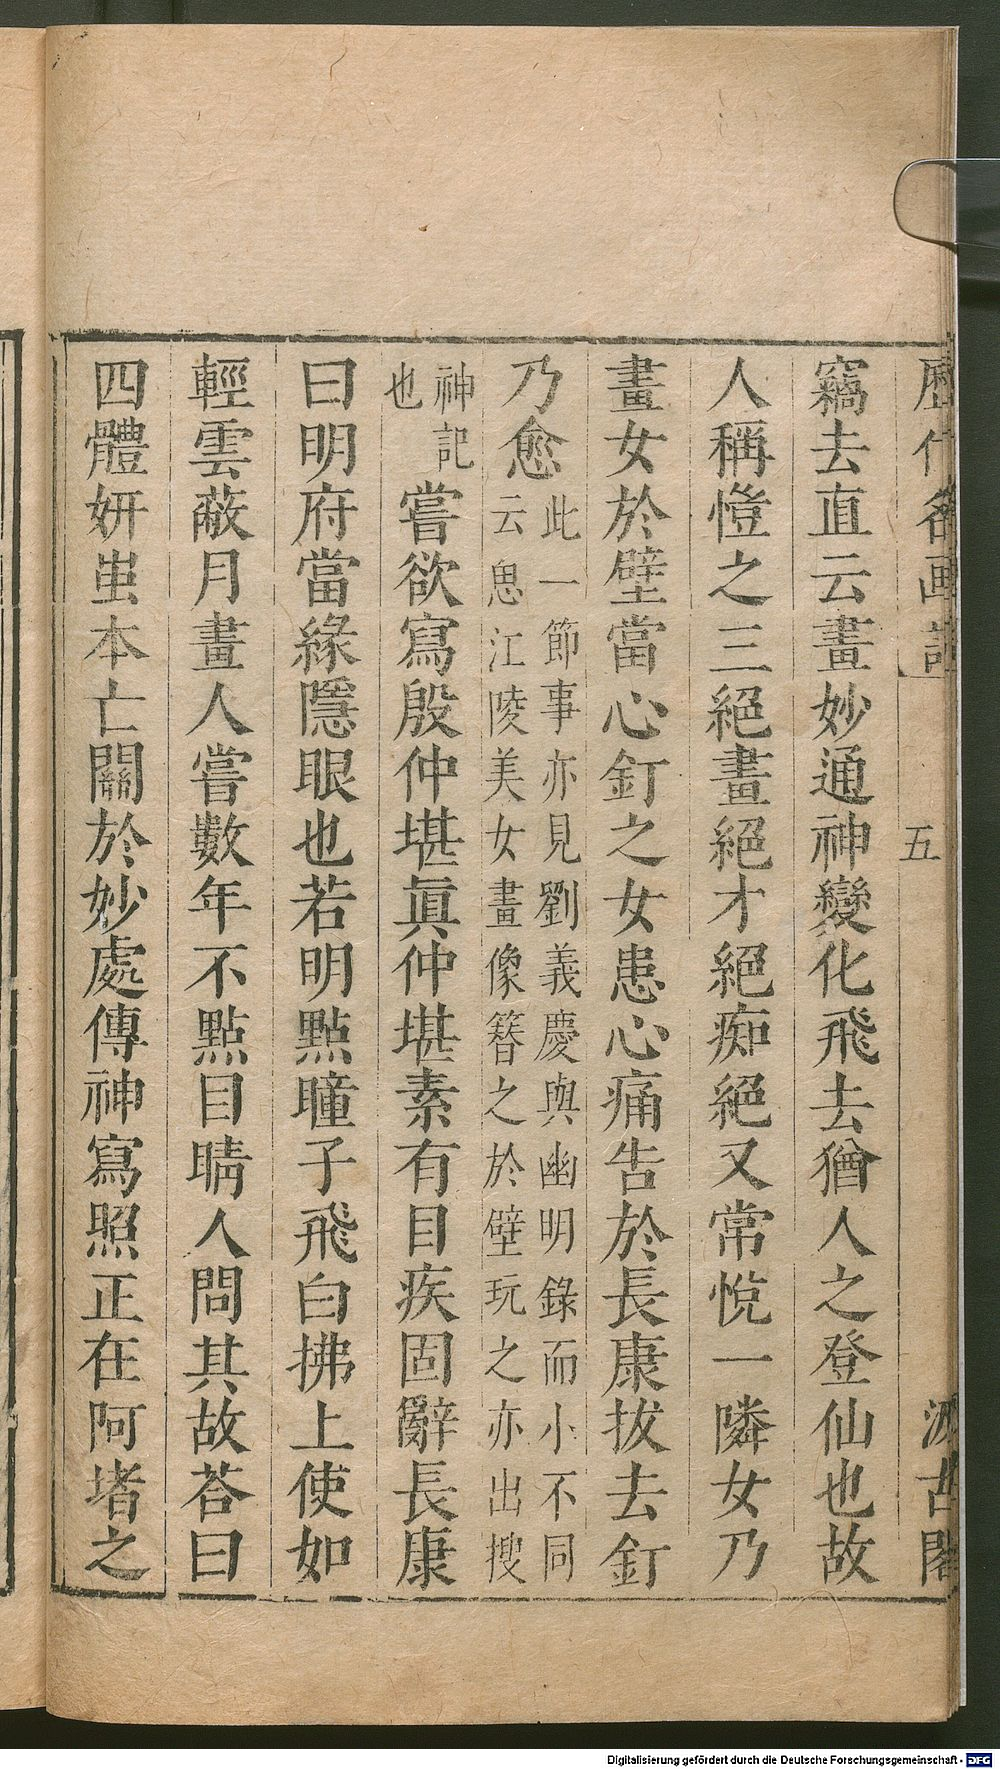 歷代名画記
五
汲古閣
竊去直云畫妙通神變化飛去猶人之登仙也故
人稱愷之三絕畫絕才絕痴絕又常悅一隣女乃
畫女於壁當心釘之女患心痛告於長康拔去釘
乃愈此一節事亦見劉義慶與幽明錄而小不同
云思江陵美女畫像簪之於壁玩之亦出搜
神記
也嘗欲寫殷仲堪眞仲堪素有目疾固辭長康
曰明府當緣隱眼也若明點瞳子飛白拂上使如
輕雲蔽月畫人嘗數年不點目睛人問其故荅曰
四體妍蚩本亡關於妙處傳神寫照正在阿堵之
Digitalisierung gefördert durch die Deutsche Forschungsgemeinschaft - DFG